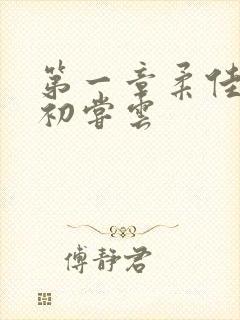 第一章柔佳
初尝云
傅静君